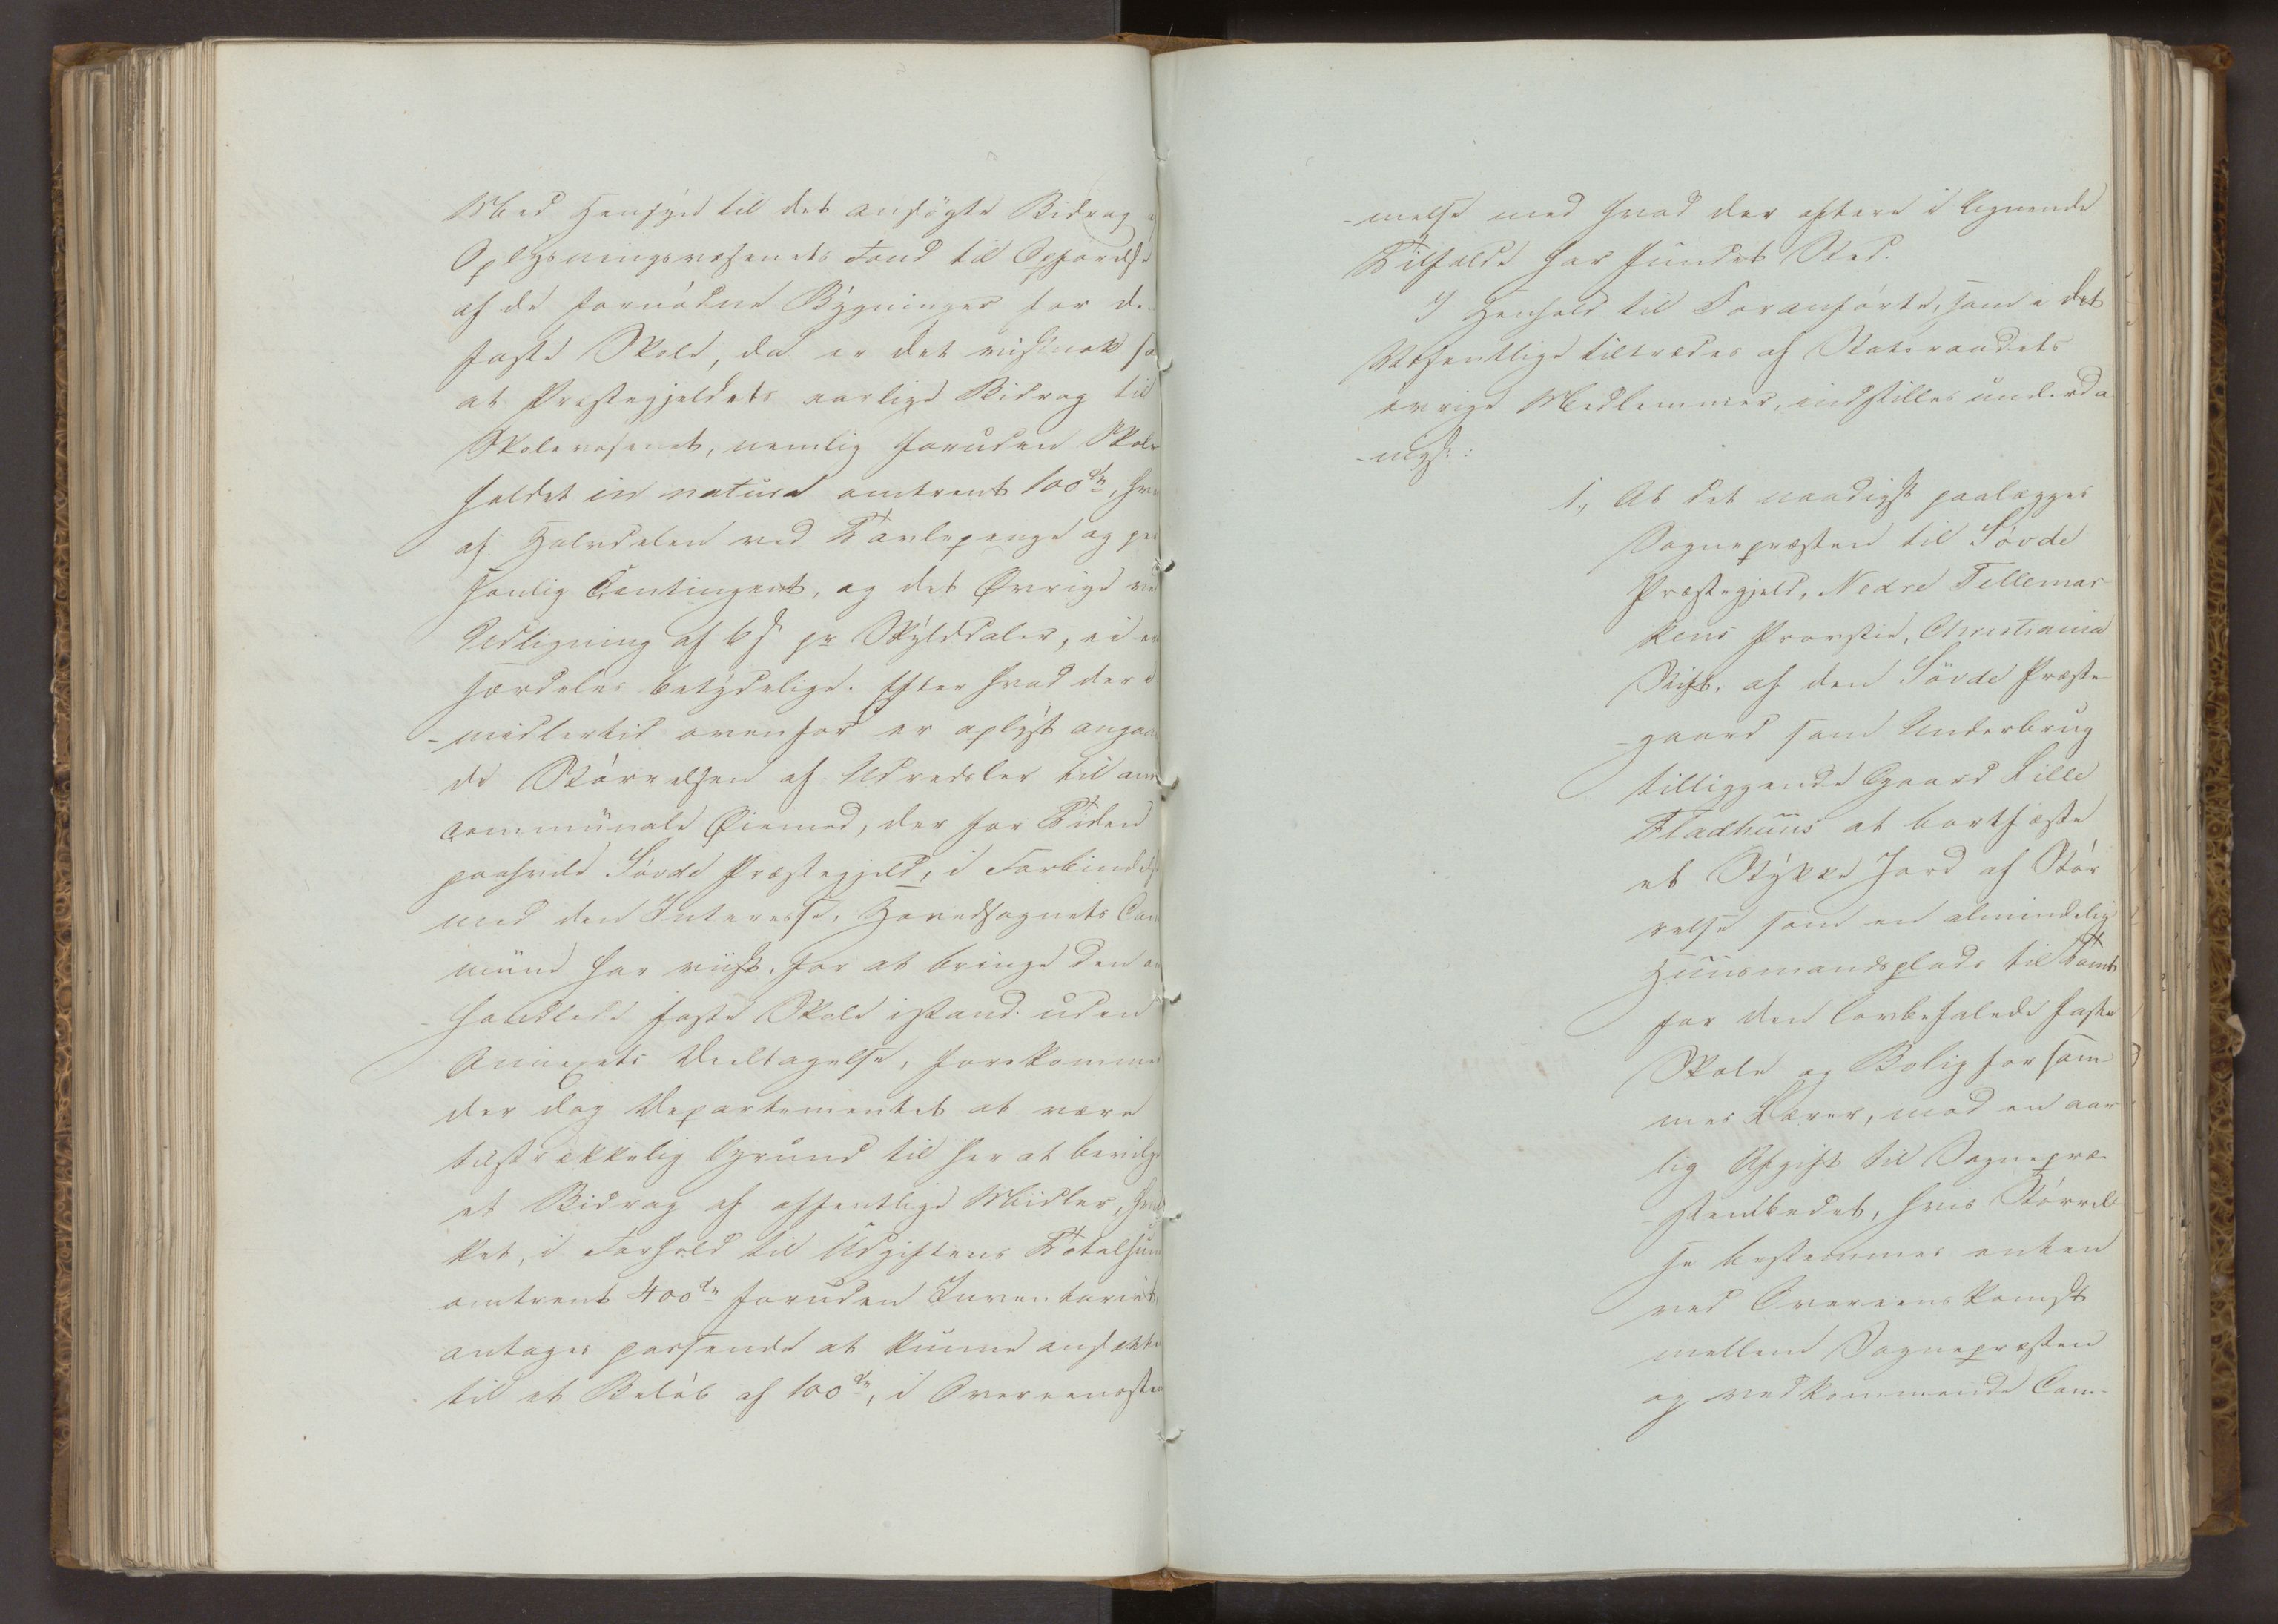 Med Hensyn til det ansøgte Bidrag
Oplysningsvæsenets Fond til Opførelse
af de fornødne Bygninger for de
faste Skole, da er det vistnok sa
at Præstegjeldets aarlige Bidrag til
Skolevæsenet, nemlig foruden Skole
holdet in natura omtrent 100 dlr, hvo
af Halvdelen ved Tavlepenge og per
sonlig Contingent, og det Øvrige ved
Udligning af 6 s pr Skylddaler, ei er
særdeles betydelige. Efter hvad der i
-midlertid ovenfor er oplyst angaa
de Størrelsen af Udredsler til an
communale Øiemed, der for Tiden
paahvile Søvde Præstegjeld, i Forbindelse
med den Interesse, Hovedsognets Com
mune har viist, for at bringe den
faste Skole istand uden
Annexets Deeltagelse, forekommer
der dog Departementet at være
tilstrækkelig Grund til her at bevilge
et Bidrag af offentlige Midler, hvil
ket, i Forhold til Udgiftens Totalsum
omtrent 400 dlr foruden Inventariet,
antages passende at kunne ansættes
til et Beløb af 100 dlr, i Overeensstem
-melse med hvad der oftere i lignende
Tilfælde har fundet Sted.
I Henhold til Foranførte, som i det
Væsentlige tiltrædes af Statsraadets
øvrige Medlemmer, indstilles underda
-nigst:
1., At det naadigst paalægges
Sognepræsten til Søvde
Præstegjeld, Nedre Tellemar
kens Provstie, Christiania
Stift, af den Søvde Præste-
-gaard som Underbrug
tilliggende Gaard Lille
Fladhuus at bortfæste
et Stykke Jord af Stør
relse som en almindelig
Huusmandsplads til Tomt
for den lovbefalede faste
Skole og Bolig for sam-
mes Lærer, mod en aar
lig Afgift til Sognepræ-
-stembedet, hvis Størrel
se bestemmes enten
ved Overeenskomst
mellem Sognepræsten
og vedkommende Com-